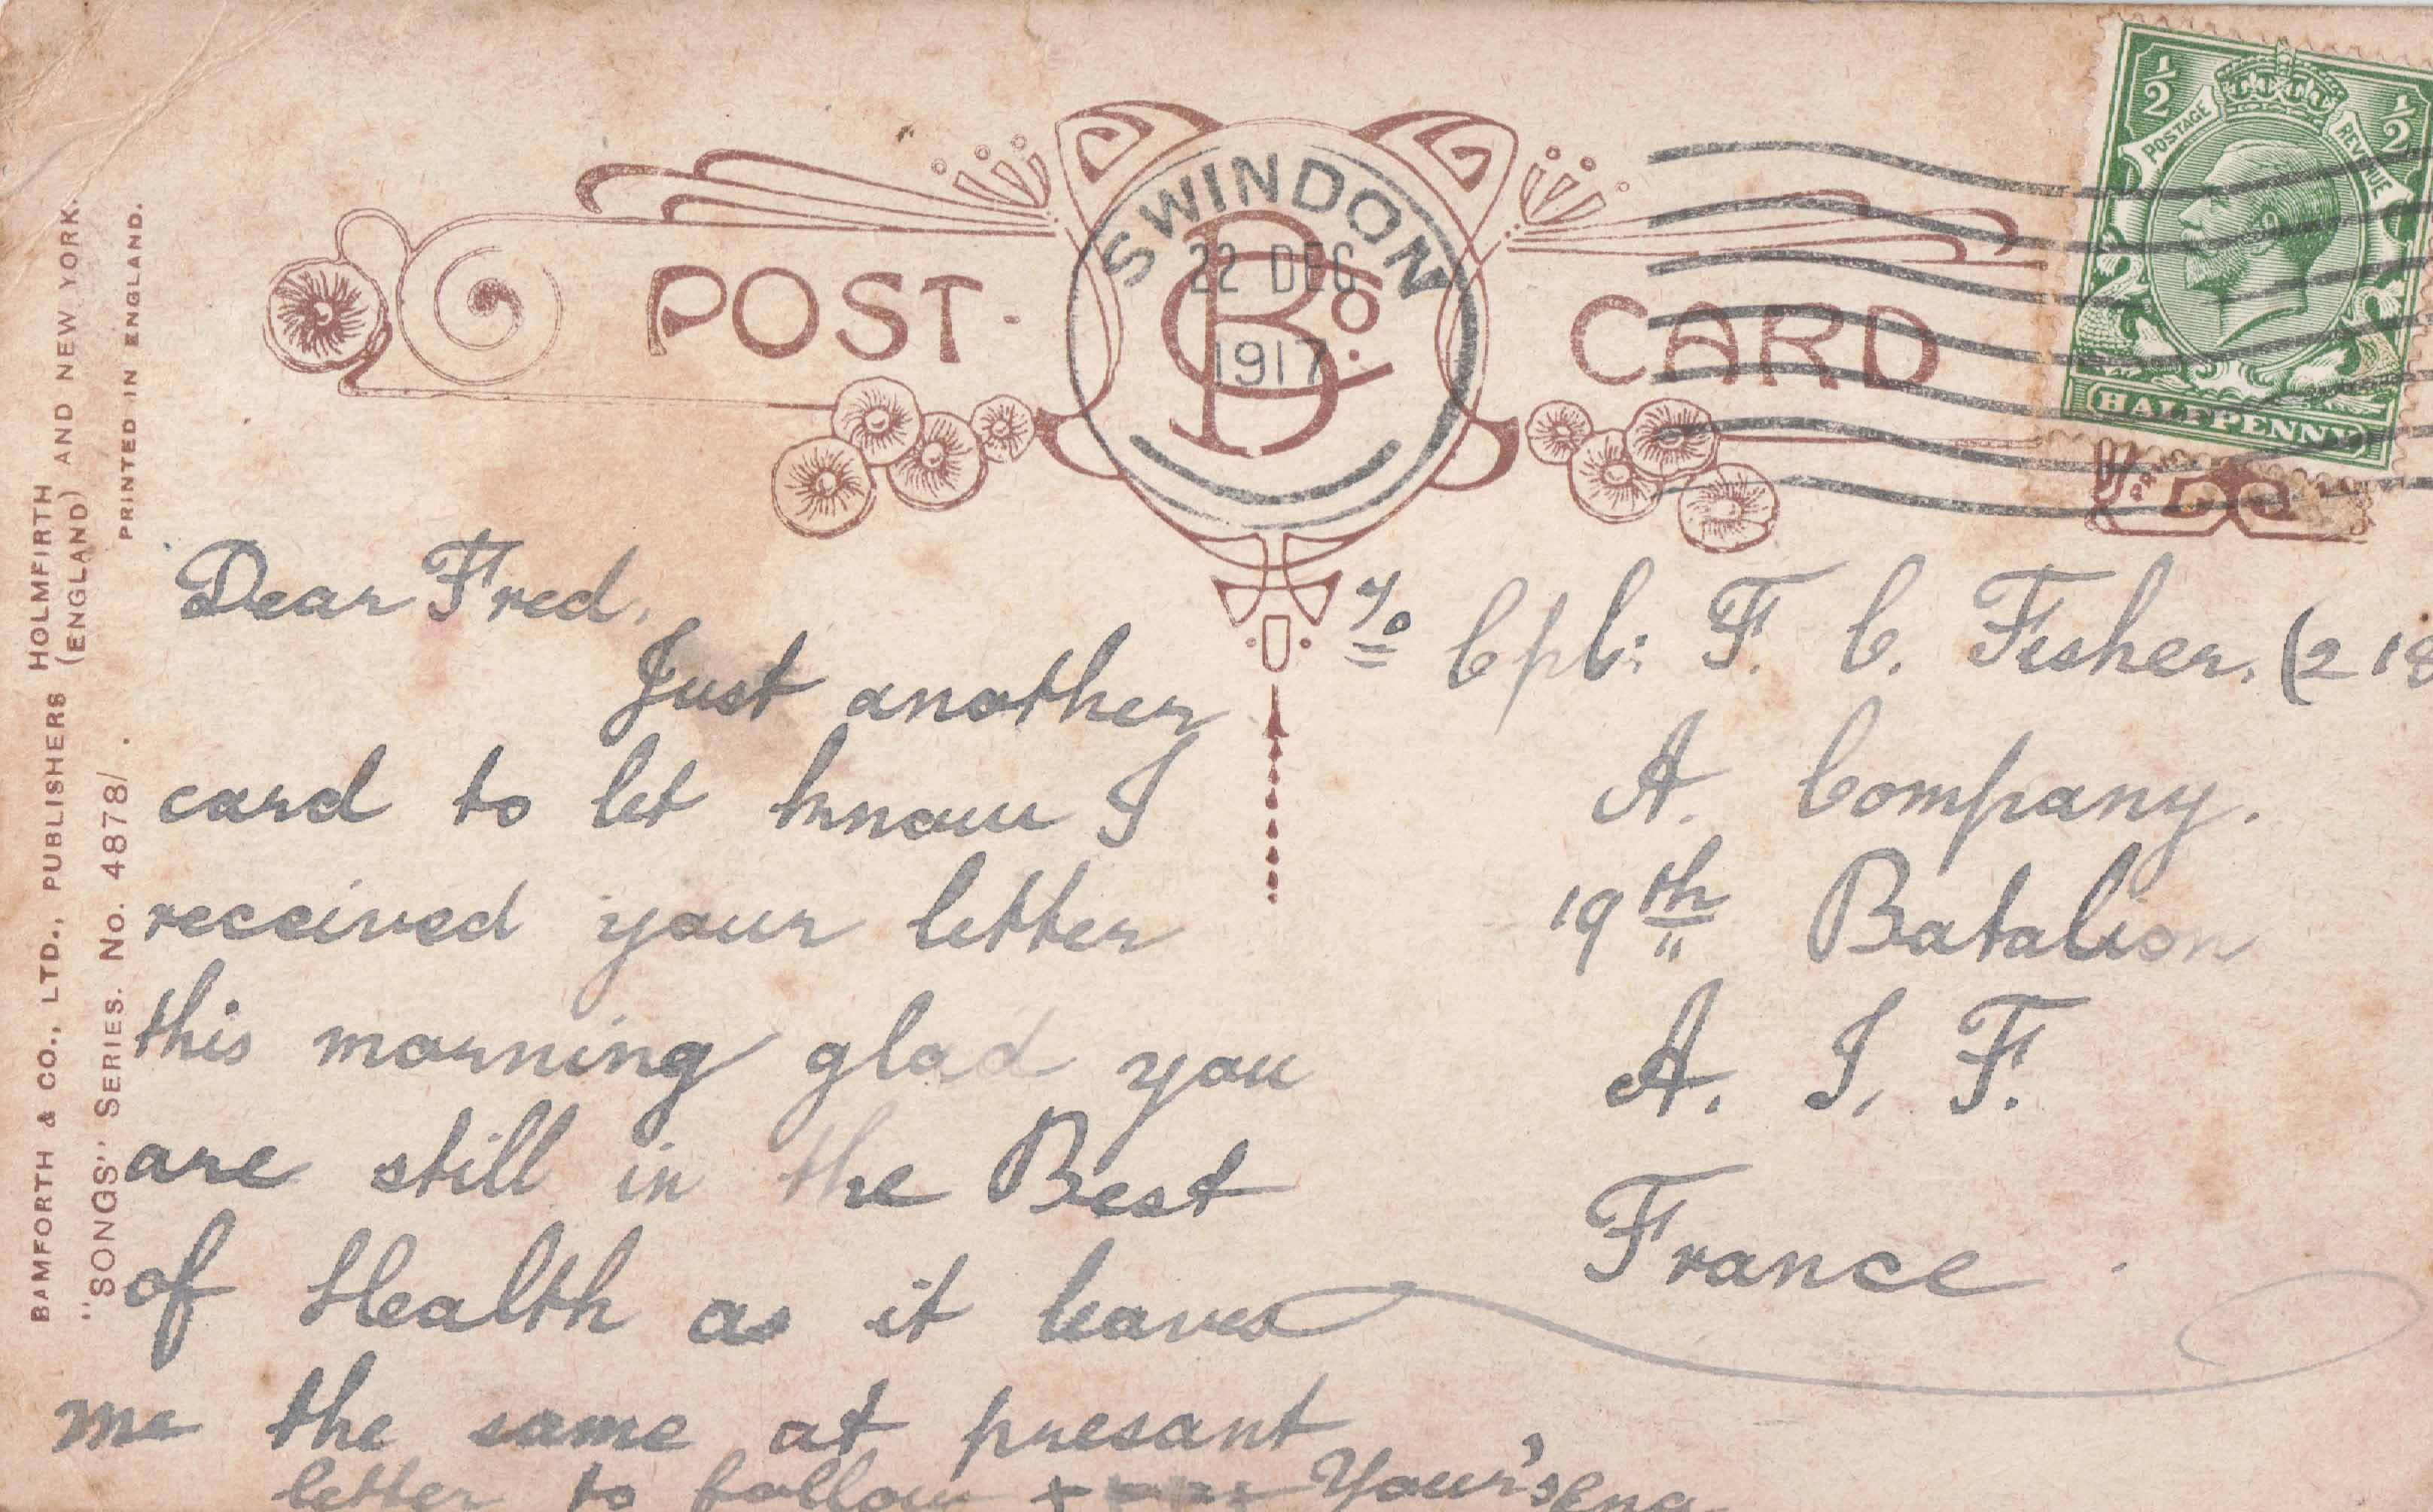 BAMFORTH & CO., LTD., PUBLISHERS HOLMFIRTH (ENGLAND) AND NEW YORK.
"SONGS" SERIES. No. 4878/ .
PRINTED IN ENGLAND.
POST CARD
B Co.
SWINDON
22 DEC
1917
1/2 1/2
POSTAGE REVENUE
HALFPENNY
Dear Fred.
Just another
card to let know I
received your letter
this morning glad you
are still in the Best
of Health as it leaves
me the same at presant
letter to follow Your's
Cpl: F. C. Fisher. (2 18
A. Company.
19th Batalion
A. I. F.
France